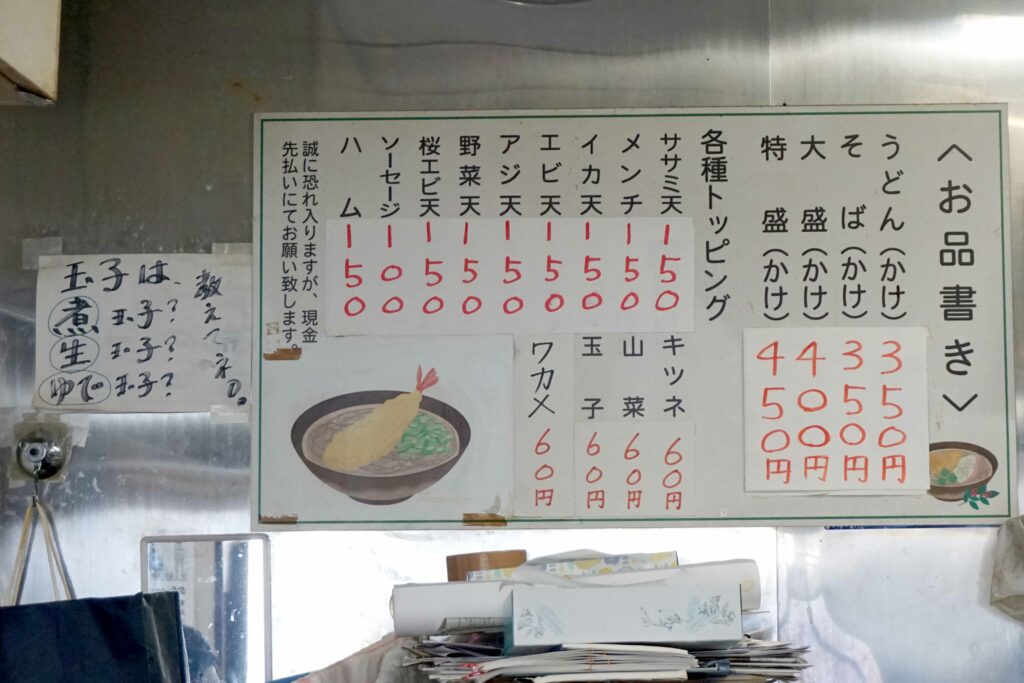 〈お品書き〉
うどん(かけ)350円
そば(かけ)350円
大盛(かけ)400円
特盛(かけ)450円
各種トッピング
ササミ天150
メンチ150
イカ天150
エビ天150
アジ天150
野菜天150
桜エビ天150
ソーセージ100
ハム150
キツネ60円
山菜60円
玉子60円
ワカメ60円
誠に恐れ入りますが、現金
先払いにてお願い致します。
玉子は、
煮玉子?
生玉子?
ゆで玉子?
教えてネ。